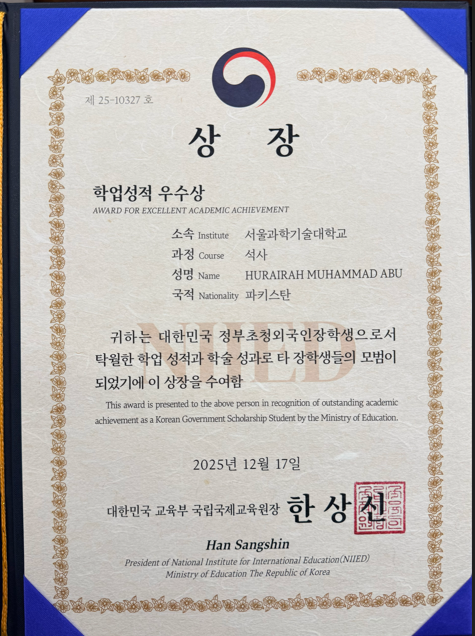 제 25-10327 호
상 장
학업성적 우수상
AWARD FOR EXCELLENT ACADEMIC ACHIEVEMENT
소속 Institute 서울과학기술대학교
과정 Course 석사
성명 Name HURAIRAH MUHAMMAD ABU
국적 Nationality 파키스탄
NIIED
귀하는 대한민국 정부초청외국인장학생으로서
탁월한 학업 성적과 학술 성과로 타 장학생들의 모범이
되었기에 이 상장을 수여함
This award is presented to the above person in recognition of outstanding academic
achievement as a Korean Government Scholarship Student by the Ministry of Education.
2025년 12월 17일
대한민국 교육부 국립국제교육원장 한상신
Han Sangshin
President of National Institute for International Education(NIIED)
Ministry of Education The Republic of Korea